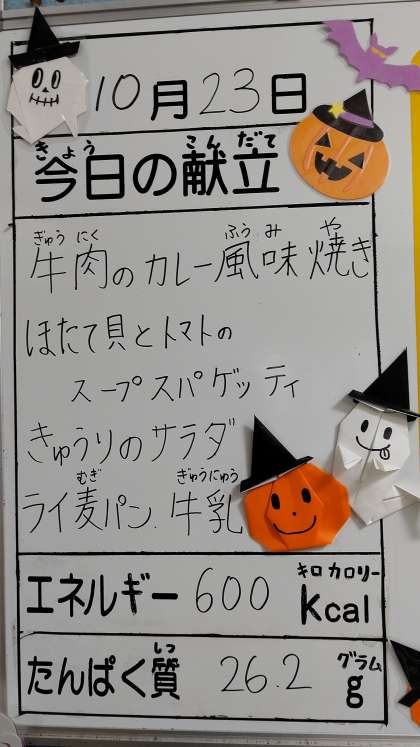 10月23日
きょう こんだて
今日の献立
ぎゅう にく ふう み や
牛肉のカレー風味焼き
ほたて貝とトマトの
スープスパゲッティ
きゅうりのサラダ
むぎ ぎゅうにゅう
ライ麦パン. 牛乳
キロカロリー
エネルギー 600 kcal
しつ グラム
たんぱく質 26.2 g